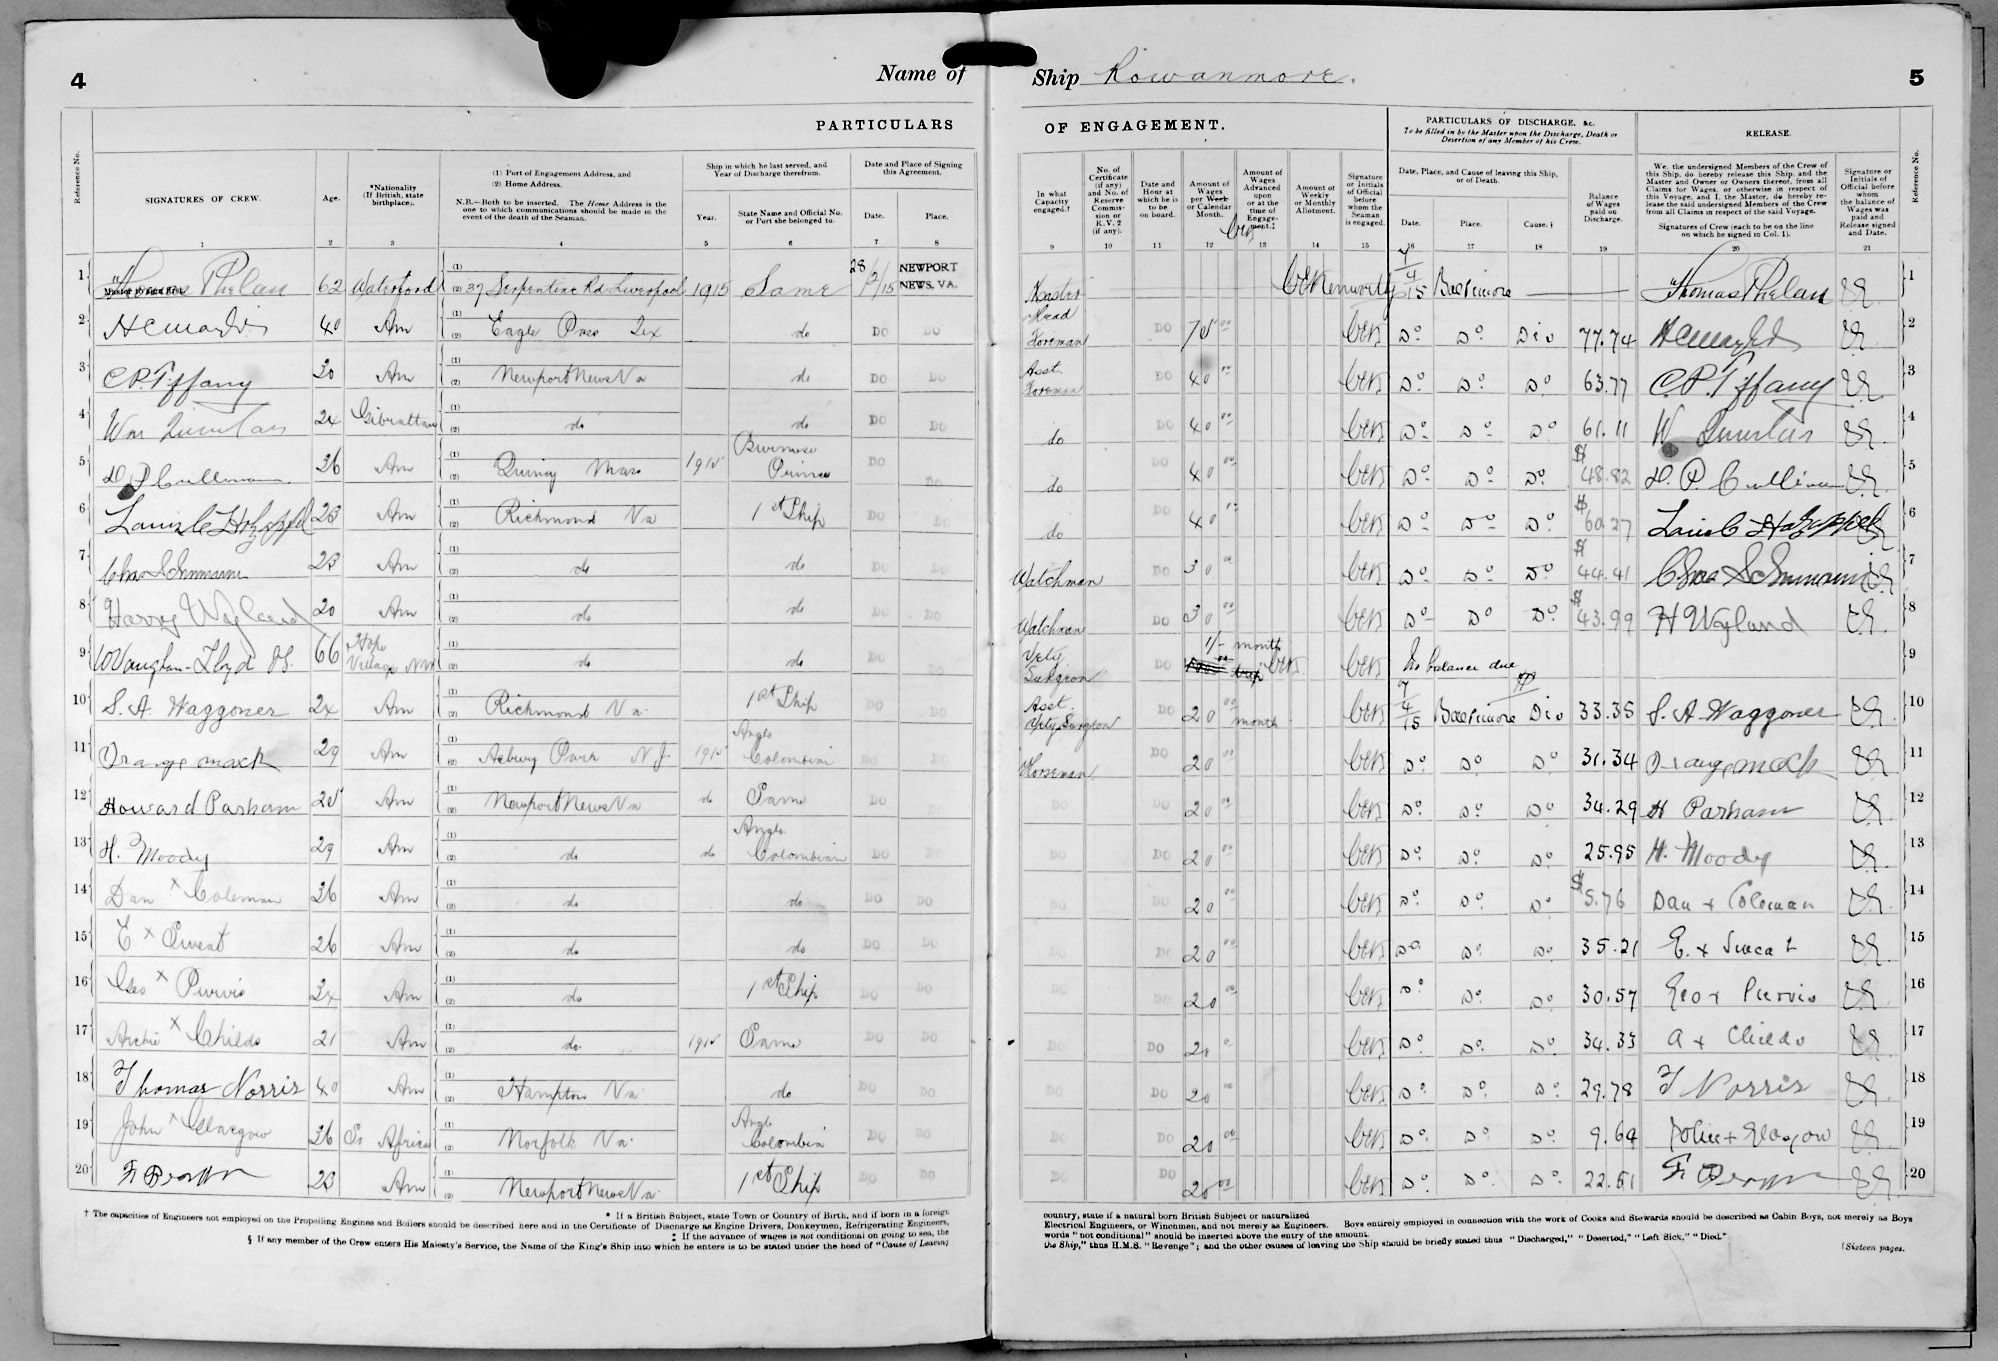 4
Name of
Ship Rowanmore.
5
PARTICULARS
OF ENGAGEMENT.
PARTICULARS OF DISCHARGE, &c.
To be filled in by the Master upon the Discharge, Death or
Desertion of any Member of his Crew.
RELEASE.
Reference No.
SIGNATURES OF CREW.
Age.
*Nationality
(If British, state
birthplace).
(1) Port of Engagement Address, and
(2) Home Address.
N.B.—Both to be inserted. The Home Address is the
one to which communications should be made in the
event of the death of the Seaman.
Ship in which he last served, and
Year of Discharge therefrom.
Year.
State Name and Official No.
or Port she belonged to.
Date and Place of Signing
this Agreement.
Date.
Place.
In what
Capacity
engaged.†
No. of
Certificate
(if any)
and No. of
Reserve
Commis-
sion or
R.V. 2
(if any).
Date and
Hour at
which he is
to be
on board.
Amount of
Wages
per Week
or Calendar
Month.
Amount of
Wages
Advanced
upon
or at the
time of
Engage-
ment.‡
Amount of
Weekly
or Monthly
Allotment.
Signature
or Initials
of Official
before
whom the
Seaman
is engaged.
Date, Place, and Cause of leaving this Ship,
or of Death.
Date.
Place.
Cause. §
Balance
of Wages
paid on
Discharge.
We, the undersigned Members of the Crew of
this Ship, do hereby release this Ship, and the
Master and Owner or Owners thereof, from all
Claims for Wages, or otherwise in respect of
this Voyage, and I, the Master, do hereby re-
lease the said undersigned Members of the Crew
from all Claims in respect of the said Voyage.
Signatures of Crew (each to be on the line
on which he signed in Col. 1).
Signature or
Initials of
Official before
whom
the balance of
Wages was
paid and
Release signed
and Date.
Reference No.
1 2 3 4 5 6 7 8 9 10 11 12 13 14 15 16 17 18 19 20 21
1 Thomas Phelan 62 Waterford (1) (2) 37 Serpentine Rd Liverpool 1915 Same 28/2/15 NEWPORT NEWS, VA. Master 7/4/15 Baltimore Thomas Phelan 1
2 40 Am (1) (2) Eagle Pass Tex do DO DO Head Foreman DO 75 00 Do Do Dis 77.74 2
3 C.P. Tiffany 30 Am (1) (2) Newport News Va do DO DO Asst. Foreman DO 40 00 Do Do Do 63.77 C.P. Tiffany 3
4 Wm 24 Gibraltar (1) (2) do do DO DO do 40 00 Do Do Do 61.11 W 4
5 D P Cullinan 36 Am (1) (2) Quincy Mass 1915 Burmese Prince DO DO do DO 40 00 Do Do Do $ 48.82 D. P. Cullinan 5
6 Louis C Holzappel 23 Am (1) (2) Richmond Va 1st Ship DO DO do DO 40 Do Do Do $ 60.27 Louis C Holzappel 6
7 Chas Schumann 23 Am (1) (2) do do DO DO Watchman DO 30 00 Do Do Do $ 44.41 Chas Schumann 7
8 Harry Wyland 20 Am (1) (2) do do DO DO Watchman DO 30 00 Do Do Do $ 43.99 H Wyland 8
9 W Vaughan-Lloyd 66 Hope Village (1) (2) do do DO DO Vety Surgeon DO 1/- month No balance due 9
10 S. A. Waggoner 24 Am (1) (2) Richmond Va. 1st Ship DO DO Asst. Vety Surgeon DO 20 00 month 7/4/15 Baltimore Dis 33.35 S. A. Waggoner 10
11 Orange Mack 29 Am (1) (2) Asbury Park N.J. 1915 Anglo Colombian DO DO Horseman DO 20 00 Do Do Do 31.34 Orange Mack 11
12 Howard Parham 25 Am (1) (2) Newport News Va do Same DO DO DO DO 20 00 Do Do Do 34.29 H Parham 12
13 H. Moody 29 Am (1) (2) do do Anglo Colombian DO DO DO DO 20 00 Do Do Do 25.95 H. Moody 13
14 Dan x Coleman 36 Am (1) (2) do do DO DO DO DO 20 00 Do Do Do $ 5.76 Dan x Coleman 14
15 E x Sweat 26 Am (1) (2) do do DO DO DO DO 20 00 Do Do Do 35.21 E. x Sweat 15
16 Geo x Purvis 34 Am (1) (2) do 1st Ship DO DO DO DO 20 00 Do Do Do 30.57 Geo x Purvis 16
17 Archie x Childs 21 Am (1) (2) do. 1915 Same DO DO DO DO 20 Do Do Do 34.33 A x Childs 17
18 Thomas Norris 40 Am (1) (2) Hampton Va. do DO DO DO DO 20 00 Do Do Do 29.78 T Norris 18
19 John x Glasgow 36 So Africa (1) (2) Norfolk Va. Anglo Colombia DO DO DO DO 20 00 Do Do Do 9.64 John x Glasgow 19
20 F Brown 23 Am (1) (2) Newport News Va. 1st Ship DO DO DO DO 20 00 Do Do Do 22.51 F Brown 20
* If a British Subject, state Town or Country of Birth, and if born in a foreign
country, state if a natural born British Subject or naturalized
† The capacities of Engineers not employed on the Propelling Engines and Boilers should be described here and in the Certificate of Discharge as Engine Drivers, Donkeymen, Refrigerating Engineers,
Electrical Engineers, or Winchmen, and not merely as Engineers. Boys entirely employed in connection with the work of Cooks and Stewards should be described as Cabin Boys, not merely as Boys
‡ If the advance of wages is not conditional on going to sea, the
words "not conditional" should be inserted above the entry of the amount.
§ If any member of the Crew enters His Majesty's Service, the Name of the King's Ship into which he enters is to be stated under the head of "Cause of Leaving
the Ship," thus H.M.S. "Revenge"; and the other causes of leaving the Ship should be briefly stated thus "Discharged," "Deserted," "Left Sick," "Died."
[Sixteen pages.